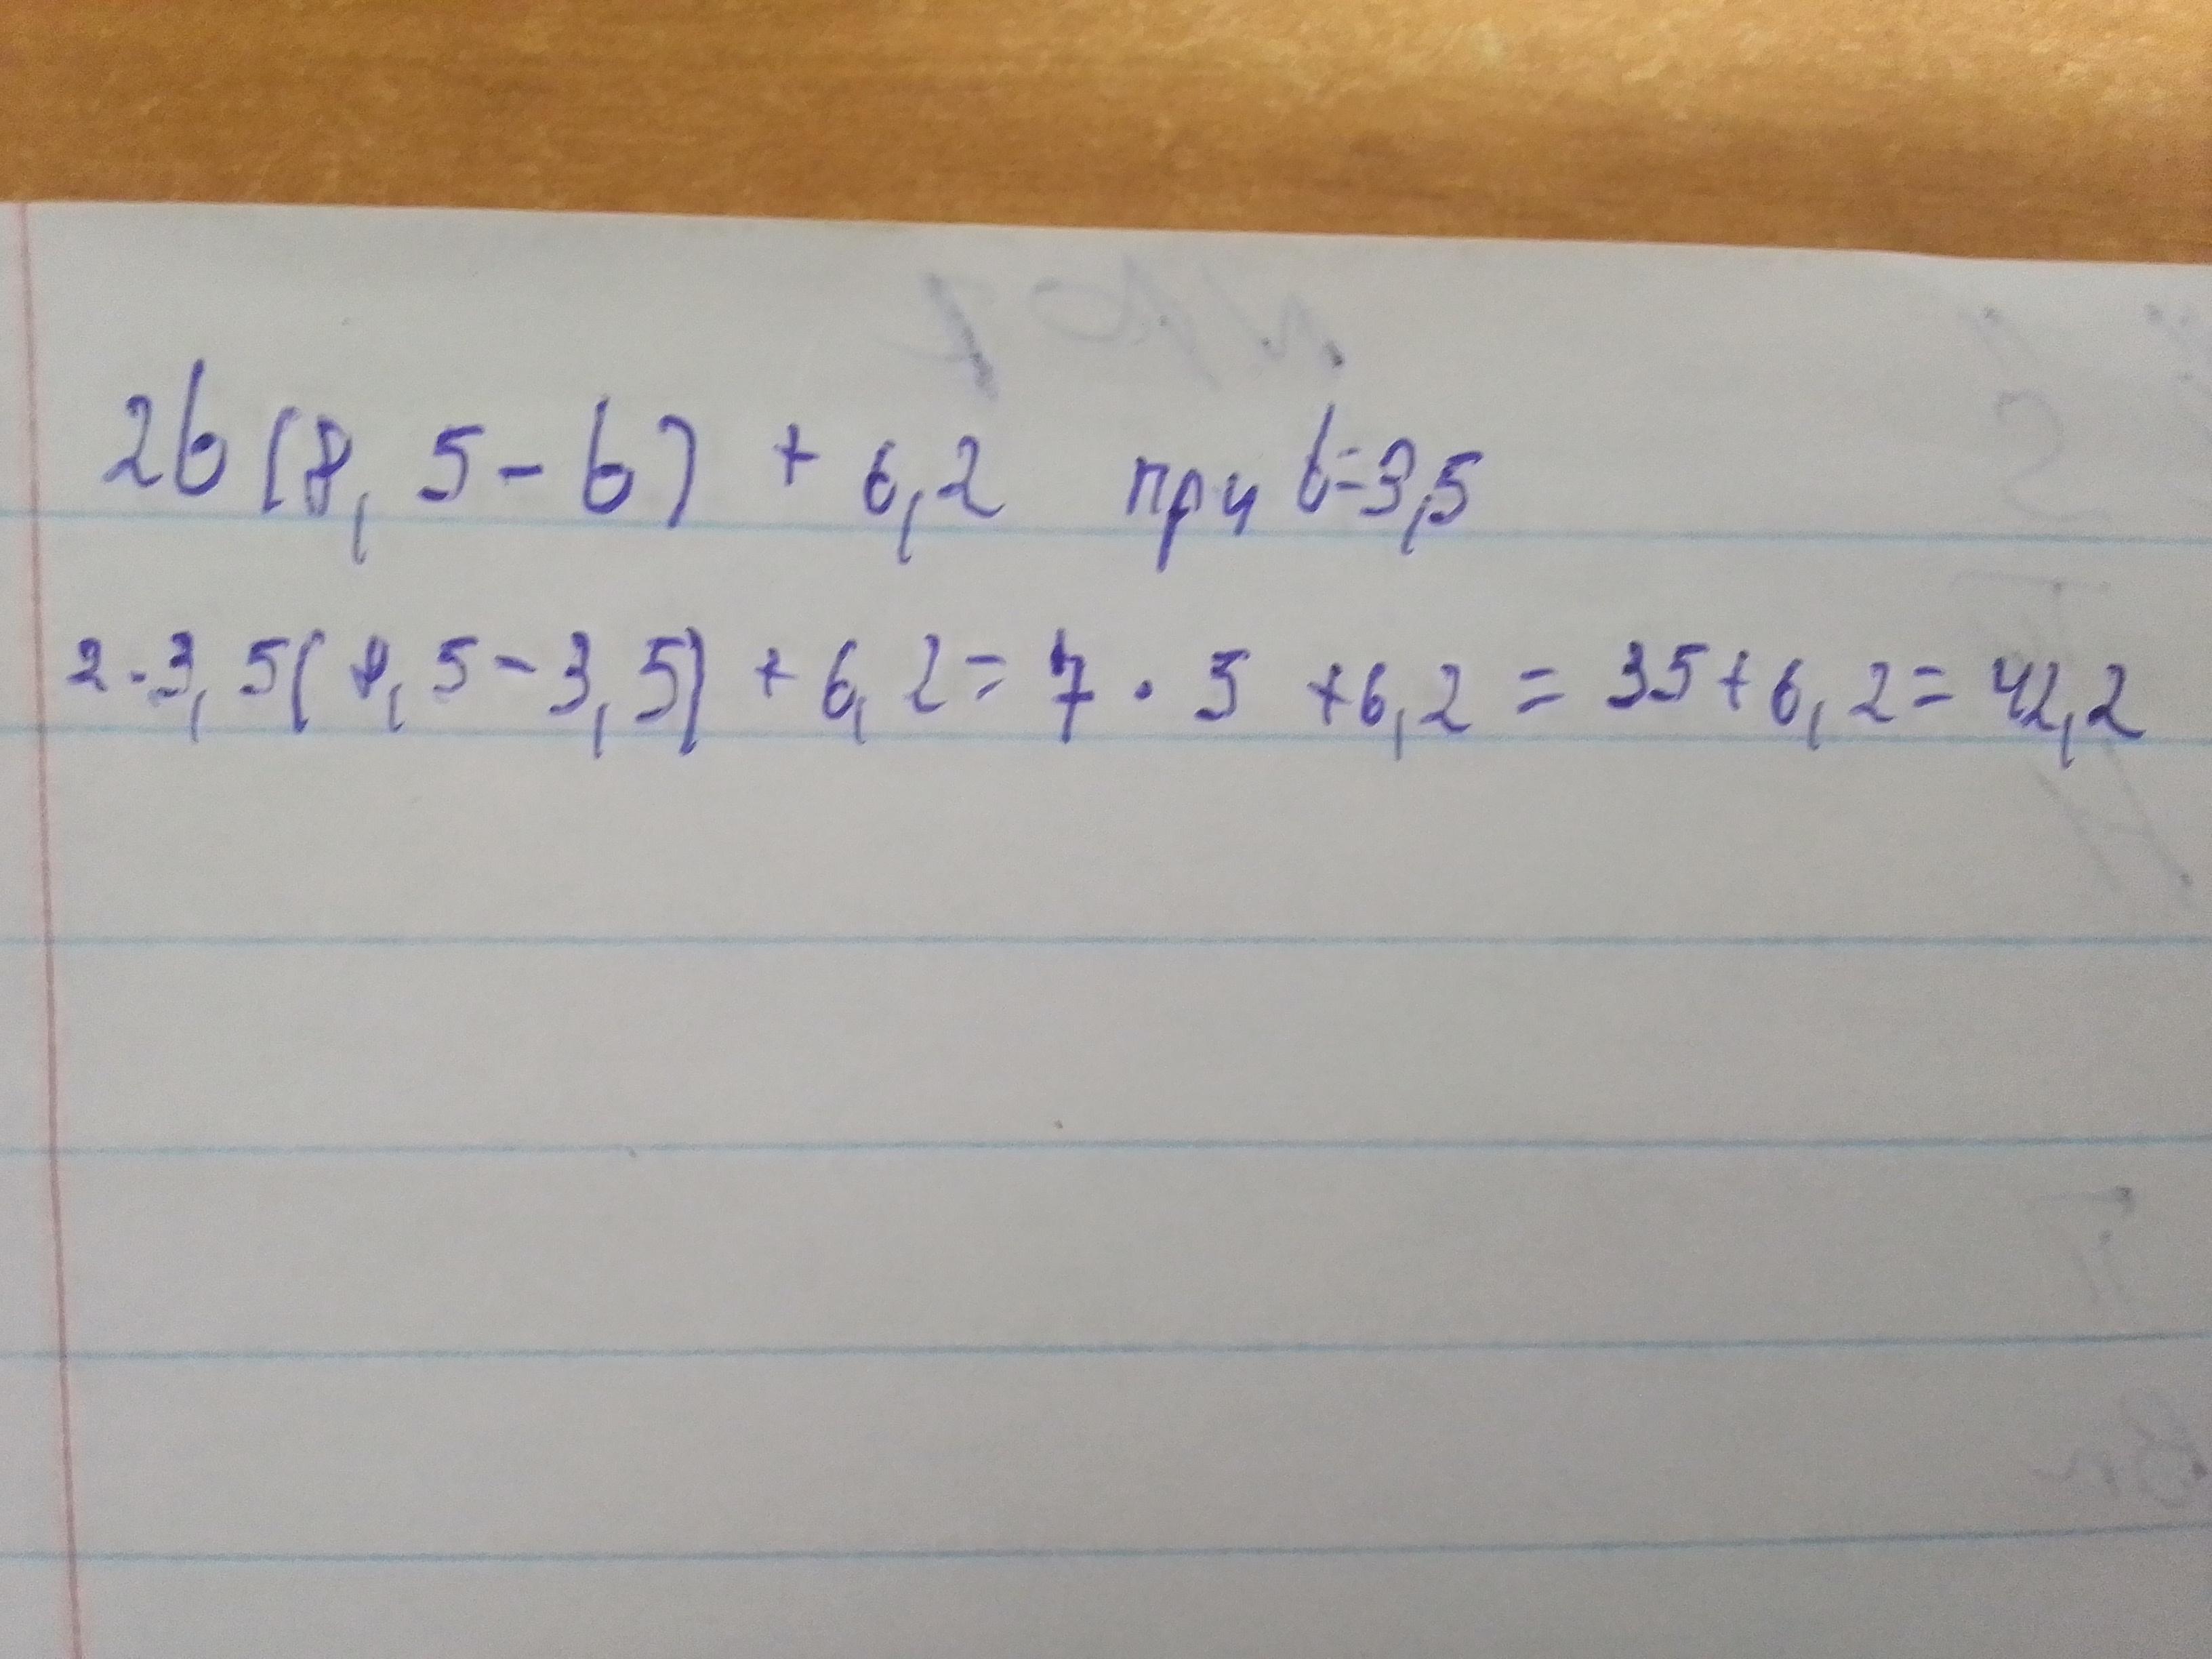 2b (8,5 - b) + 6,2 при b=3,5
2·3,5(8,5-3,5)+6,2=7·5+6,2=35+6,2=42,2